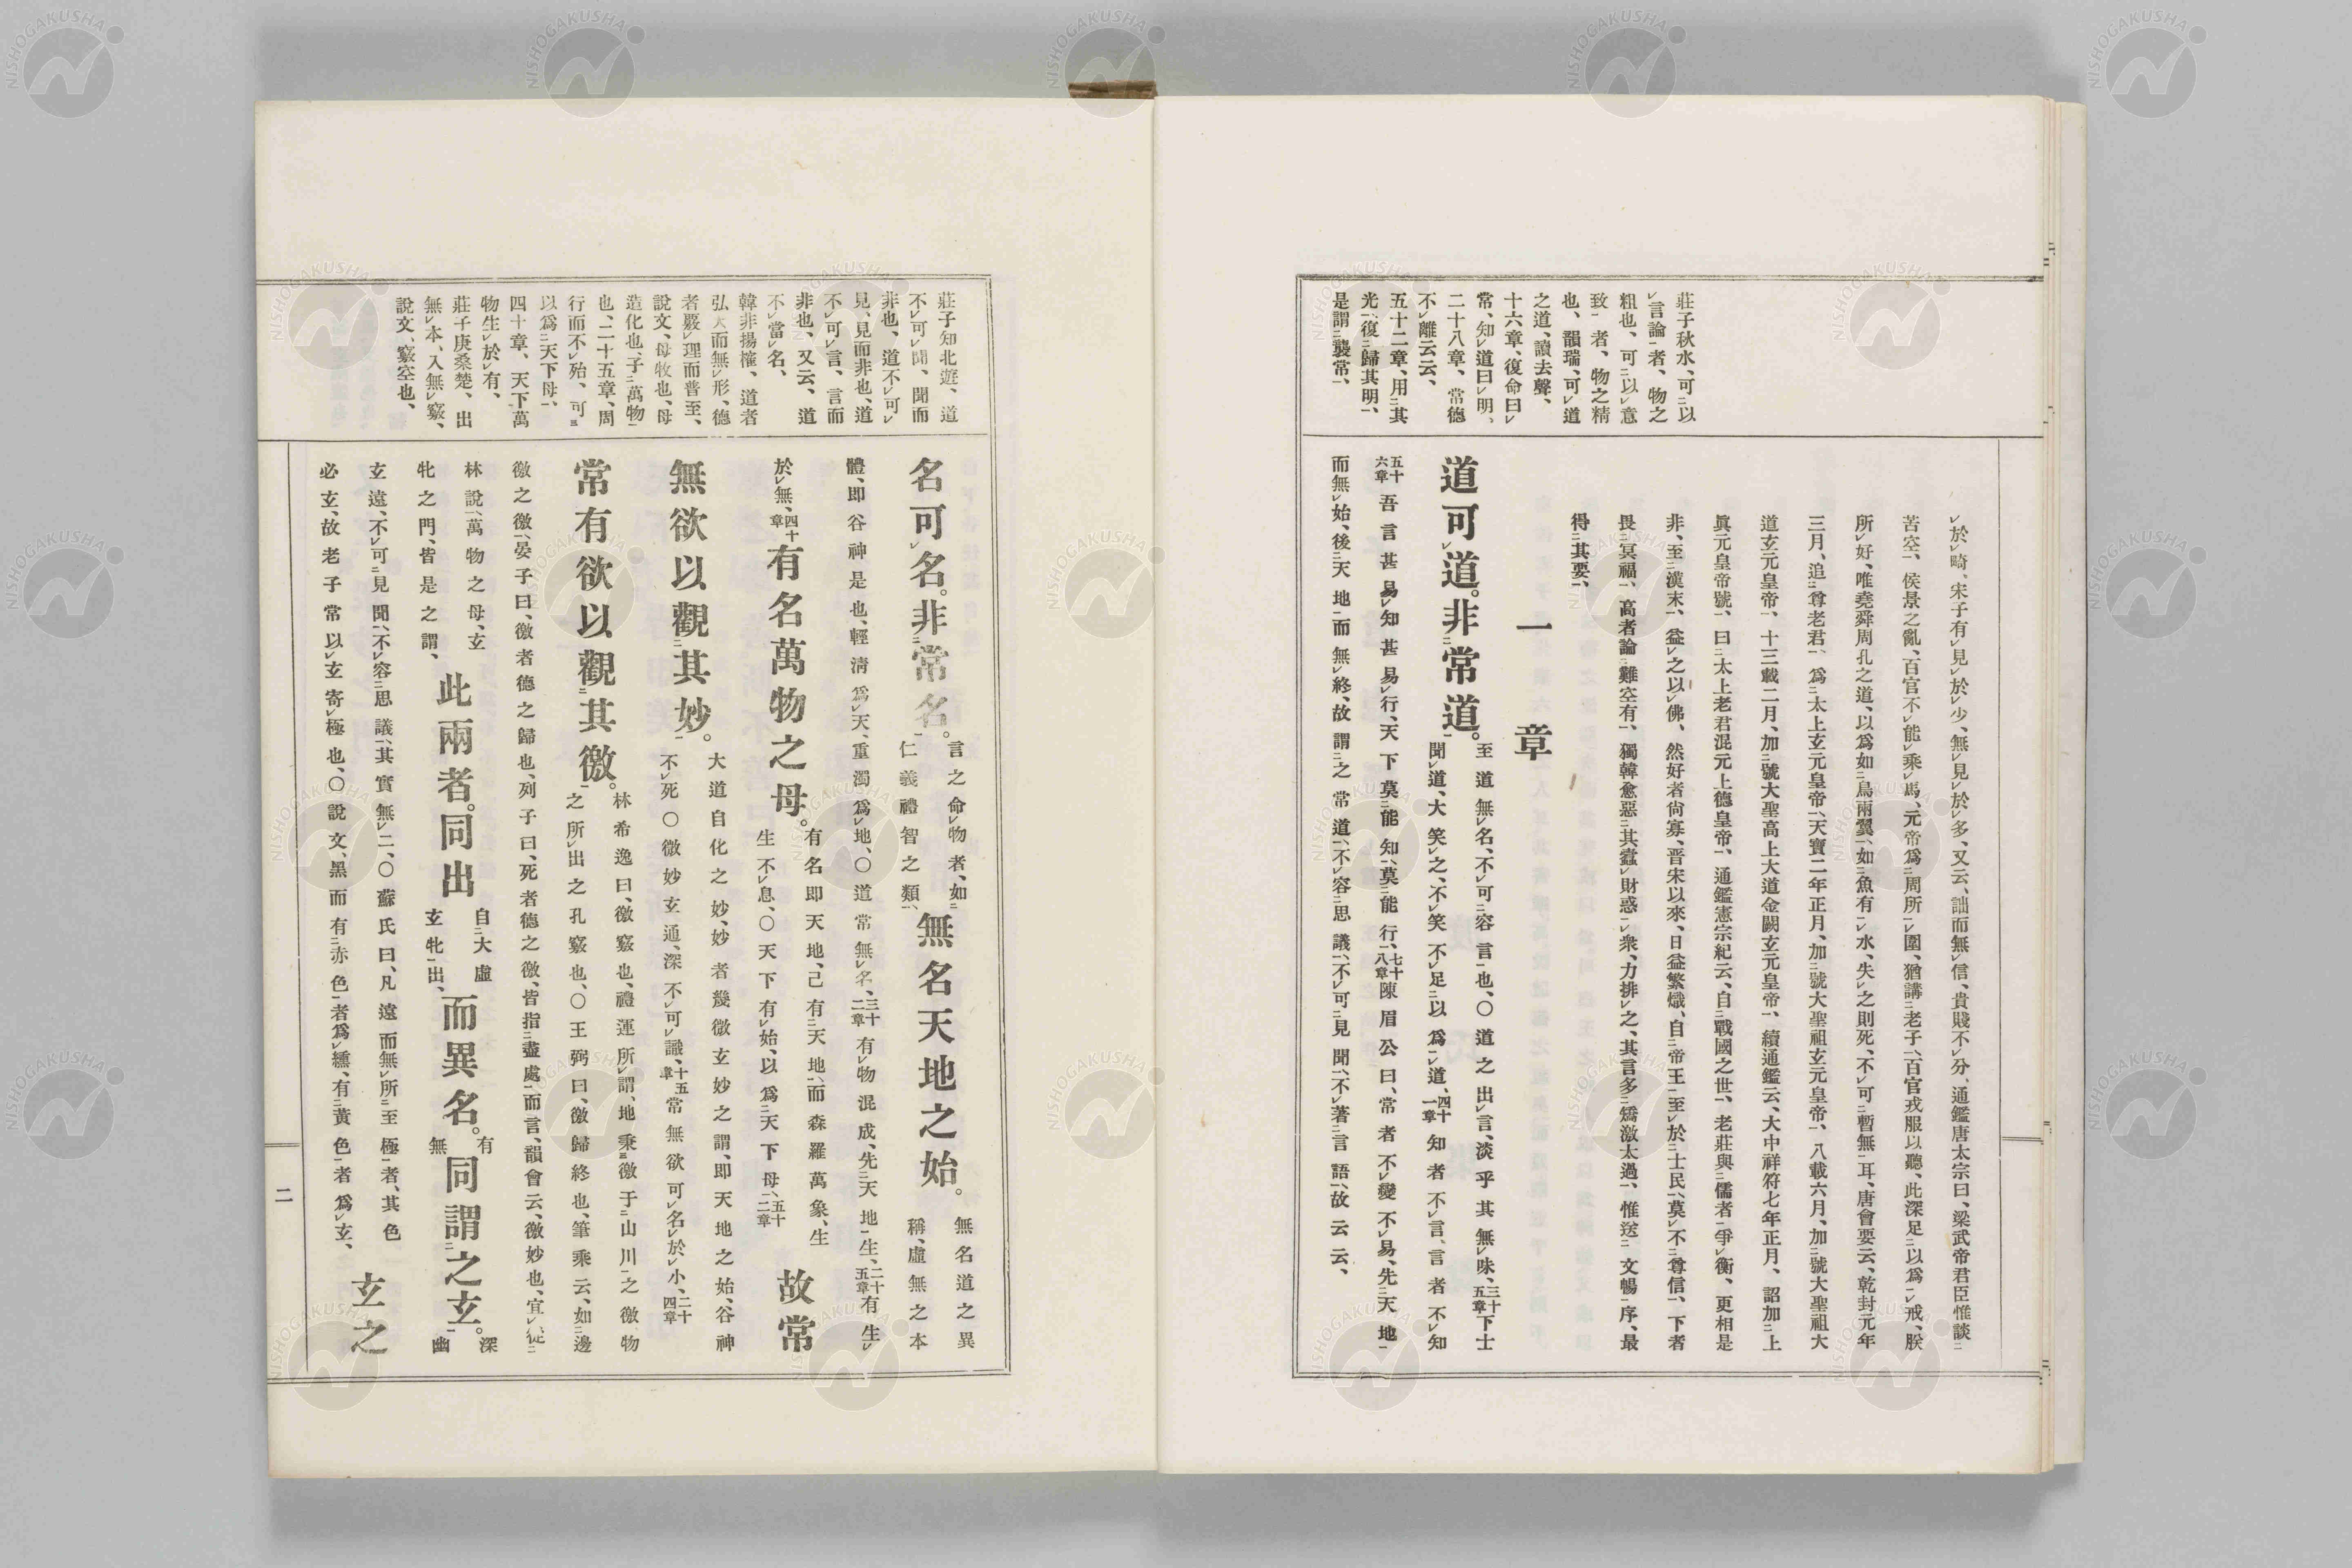 莊子秋水、可㆓以
㆑言論㆒者、物之
粗也、可㆓以㆑意
致㆒者、物之精
也、韻瑞、可㆑道
之道、讀去聲、
十六章、復命曰㆑
常、知㆑道曰㆑明、
二十八章、常德
不㆑離云云、
五十二章、用㆓其
光㆒、復㆓歸其明㆒、
是謂㆓襲常㆒、
㆑於㆑畸、宋子有㆑見㆑於㆑少、無㆑見㆑於㆑多、又云、詘而無㆑信、貴賤不㆑分、通鑑唐太宗曰、梁武帝君臣惟談㆓
苦空㆒、侯景之亂、百官不㆑能㆑乘㆑馬、元帝爲㆓周所㆒㆑圍、猶講㆓老子㆒、百官戎服以聽、此深足㆓以爲㆒㆑戒、朕
所㆑好、唯堯舜周孔之道、以爲如㆓鳥兩翼㆒、如㆓魚有㆒㆑水、失㆑之則死、不㆑可㆓暫無㆒耳、唐會要云、乾封元年
三月、追㆓尊老君㆒、爲㆓太上玄元皇帝㆒、天寶二年正月、加㆓號大聖祖玄元皇帝㆒、八載六月、加㆓號大聖祖大
道玄元皇帝㆒、十三載二月、加㆓號大聖高上大道金闕玄元皇帝㆒、續通鑑云、大中祥符七年正月、詔加㆓上
眞元皇帝號㆒、曰㆓太上老君混元上德皇帝㆒、通鑑憲宗紀云、自㆓戰國之世㆒、老莊與㆓儒者㆒爭㆑衡、更相是
非、至㆓漢末㆒、益㆑之以㆑佛、然好者尚寡、晋宋以來、日益繁熾、自㆓帝王㆒至㆑於㆓士民㆒、莫㆑不㆓尊信㆒、下者
畏㆓冥福㆒、高者論㆓難空有㆒、獨韓愈惡㆓其蠹㆑財惑㆒㆑衆、力排㆑之、其言多㆓矯激太過㆒、惟送㆓文暢㆒序、最
得㆓其要㆒、
一章
道可㆑道。非㆓常道㆒。至道無㆑名、不㆑可㆓容言㆒也、〇道之出㆑言、淡乎其無㆑味、三十五章下士
聞㆑道、大笑㆑之、不㆑笑不㆑足㆓以爲㆒㆑道、四十一章知者不㆑言、言者不㆑知
五十六章吾言甚易㆑知甚易㆑行、天下莫㆓能知㆒、莫㆓能行㆒、七十八章陳眉公曰、常者不㆑變不㆑易、先㆓天地㆒
而無㆑始、後㆓天地㆒而無㆑終、故謂㆓之常道㆒、不㆑容㆓思議㆒、不㆑可㆓見聞㆒、不㆑著㆓言語㆒、故云云、
莊子知北遊、道
不㆑可㆑聞、聞而
非也、道不㆑可㆑
見、見而非也、道
不㆑可㆑言、言而
非也、又云、道
不㆑當㆑名、
韓非揚搉、道者
弘大而無㆑形、德
者覈㆑理而普至、
說文、母牧也、母
造化也、子㆓萬物㆒
也、二十五章、周
行而不㆑殆、可㆔
以爲㆓天下母㆒、
四十章、天下萬
物生㆑於㆑有、
莊子庚桑楚、出
無㆑本、入無㆑竅、
說文、竅空也、
名可㆑名。非㆓常名㆒。言之命㆑物者、如㆓仁義禮智之類㆒、無名天地之始。無名道之異稱、虛無之本
體、即谷神是也、輕淸爲㆑天、重濁爲㆑地、〇道常無㆑名、三十二章有㆑物混成、先㆓天地㆒生、二十五章有生㆑
於㆑無、四十章有名萬物之母。有名即天地、已有㆓天地㆒、而森羅萬象、生生不㆑息、〇天下有㆑始、以爲㆓天下母㆒、五十二章故常
無欲以觀㆓其妙㆒。大道自化之妙、妙者幾微玄妙之謂、即天地之始、谷神不㆑死〇微妙玄通、深不㆑可㆑識、十五章常無欲可㆑名㆑於㆑小、三十四章
常有欲以觀㆓其徼㆒。林希逸曰、徼竅也、禮運所㆑謂、地秉㆔徼于㆓山川㆒之徼物之所㆑出之孔竅也、〇王弼曰、徼歸終也、筆乘云、如㆓邊
徼之徼㆒、晏子曰、徼者德之歸也、列子曰、死者德之徼、皆指㆓盡處㆒而言、韻會云、徼妙也、宜㆑從㆓
林說㆒、萬物之母、玄牝之門、皆是之謂、此兩者。同出自㆓大虛玄牝㆒出、而異名。有無同謂㆓之玄㆒。深幽
玄遠、不㆑可㆓見聞㆒、不㆑容㆓思議㆒、其實無㆑二、〇蘇氏曰、凡遠而無㆑所㆓至極㆒者、其色
必玄、故老子常以㆑玄寄㆑極也、〇說文、黑而有㆓赤色㆒者爲㆑纁、有㆓黃色㆒者爲㆑玄、玄之
二